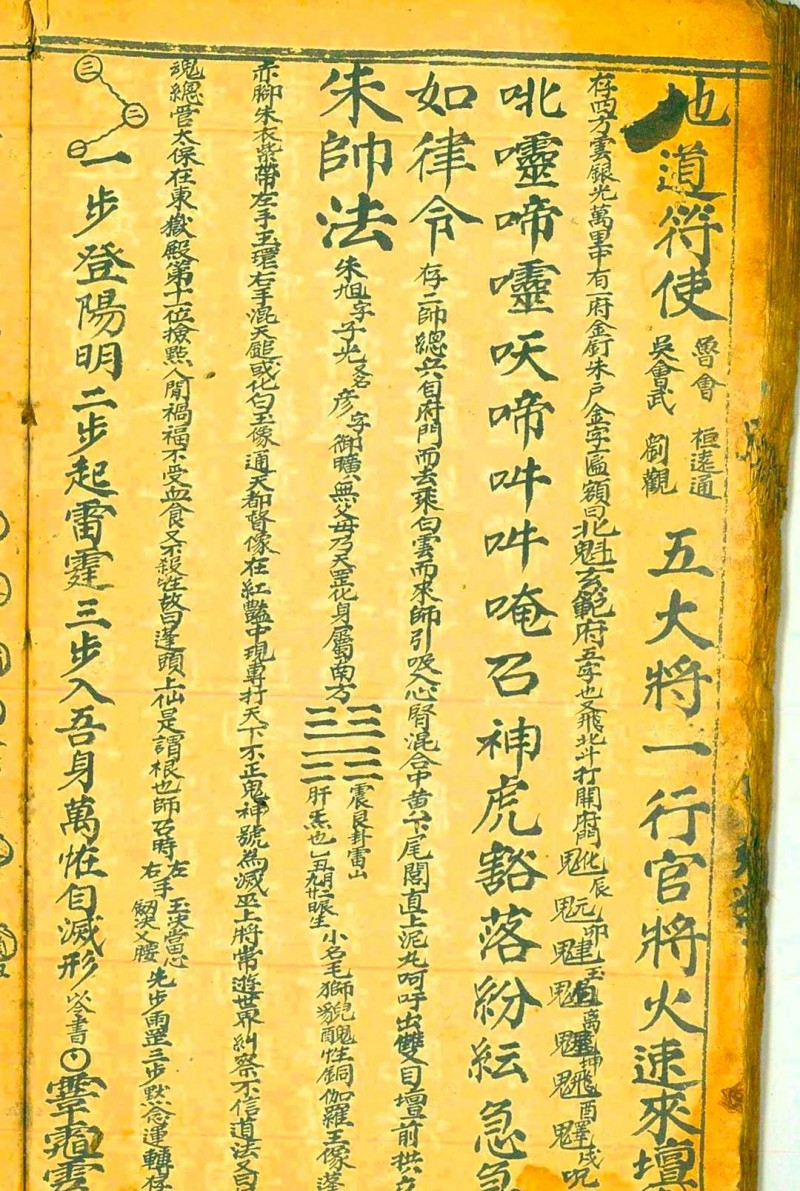 地道符使 魯會 吳會武 桓遠通 劉觀 五大將一行官將火速來壇
存西方雲銀光萬里中有一府金釘朱戶金字匾額曰北魁玄範府五字也又飛北斗打開府門
吡𤫊啼𤫊呋啼吽吽唵召神虎豁落紛紜急急
如律令 存二帥總兵自府門而去乘白雲而來師引吸入心腎混合中黃下尾閭直上泥丸呵吁出雙目壇前拱立
朱帥法 朱旭字子光又名彥字御曠無父母乃天罡化身屬南方 震艮卦雷山 肝炁也 小名毛獅猊貌醜性銅伽羅王像蓬
赤腳朱衣紫帶左手玉環右手混天鎚或化白玉像通天都督像在紅豔中現專打天下不正鬼神號為滅巫上將常遊世界糾察不信道法又曰
魂總管太保在東嶽殿第十位撿點人間禍福不受血食又不殺牲故曰蓬頭上仙是謂根也師召時 左手玉決當心 右手劍決叉腰 先步雨罡三步默念運轉存
三 二 一
一步登陽明二步起雷霆三步入吾身萬怪自滅形 書